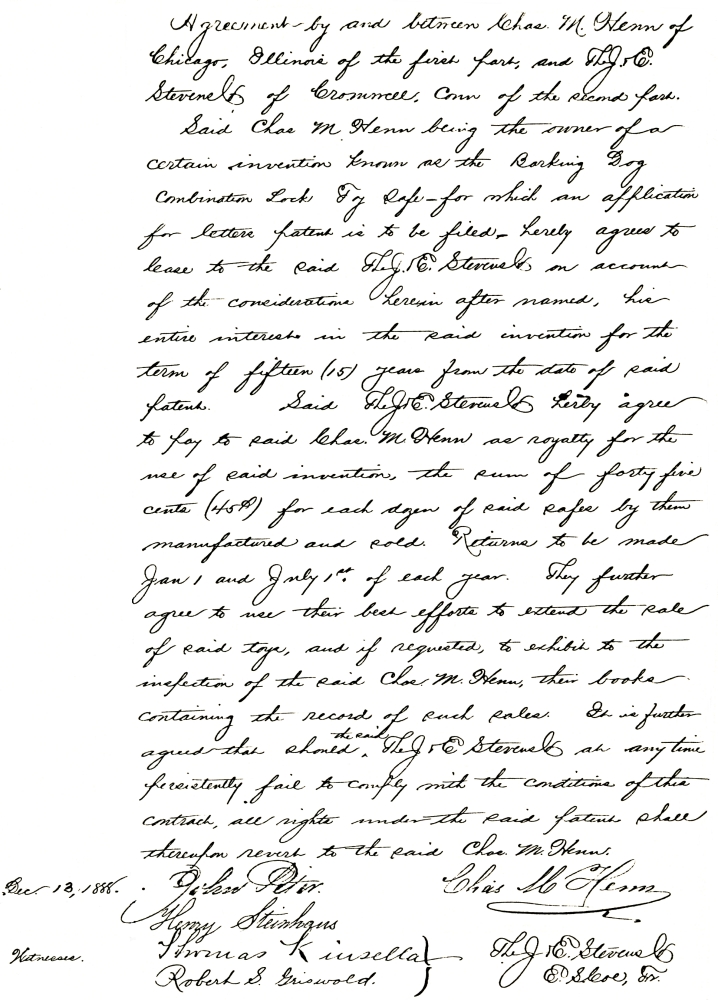 Agreement by and between Chas. M. Henn of
Chicago, Illinois of the first part, and The J. & E.
Stevens Co of Cromwell, Conn of the second part.
Said Chas M. Henn being the owner of a
certain invention known as the Barking Dog
Combination Lock Toy Safe - for which an application
for letters patent is to be filed - hereby agrees to
lease to the said The J. & E. Stevens Co, on account
of the considerations herein after named, his
entire interest in the said invention for the
term of fifteen (15) years from the date of said
patent. Said The J. & E. Stevens Co herby agree
to pay to said Chas. M. Henn as royalty for the
use of said invention, the sum of forty five
cents (45¢) for each dozen of said safes by them
manufactured and sold. Returns to be made
Jan 1 and July 1st. of each year. They further
agree to use their best efforts to extend the sale
of said toys, and if requested, to exhibit to the
inspection of the said Chas. M. Henn, their books
containing the record of such sales. It is further
agreed that should, the said The J & E Stevens Co at any time
persistently fail to comply with the conditions of this
contract, all rights under the said patent shall
thereupon revert to the said Chas. M. Henn.
Dec 13, 1888. John Peter. Chas M Henn
Henry Steinhaus
Witnesses. Thomas Kinsella } The J. & E. Stevens Co
Robert S. Griswold. E. S. Coe, Tr.